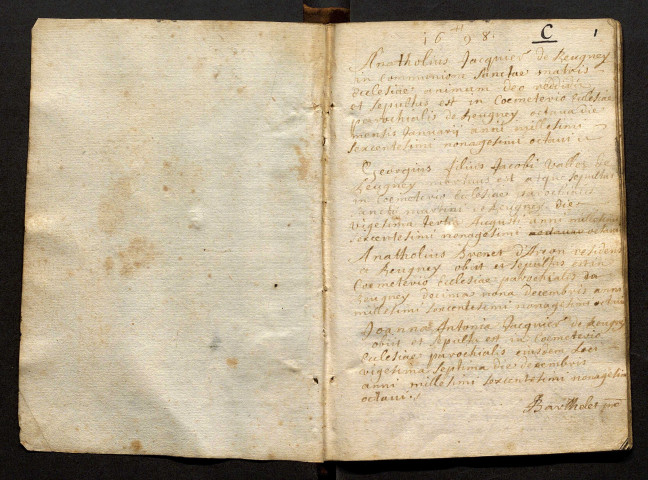 1698. C 1
Anatholius Jacquier de Reugney
in communione sanctae matris
Ecclesiae animum deo reddidit
et sepultus est in Coemeterio Ecclesiae
parochialis de Reugney octava die
mensis Januarii anni millesimi
sexcentesimi nonagesimi octavi
Georgius filius Jacobi de
Reugney mortuus est atque sepultus
in Coemeterio Ecclesiae parochialis
sancti martini de Reugney die
vigesima tertia Augusti anni millesimi
sexcentesimi nonagesimi octavi
Anatholius Bvenet d'Arcon residens
a Reugney obiit et sepultus est in
Coemeterio Ecclesiae parochialis du
Reugney decima nona decembris anni
millesimi sexcentesimi nonagesimi octavi
Joanna Antonea Jacquier de Reugney
obiit et sepulta est in Coemeterio
Ecclesiae parochialis eiusdem loci
vigesima septima die decembris
anni millesimi sexcentesimi nonagesimi
octavi.
Barthelet